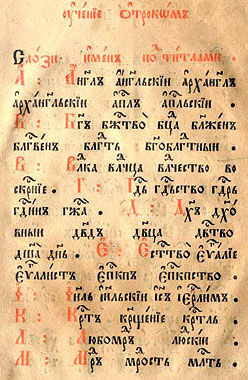 ᲂу҆че́нїе ѻ҆трокѡ́мъ
Сло́зи и҆ме́нъ по ти́тлами
А : А҆́гг҃лъ а҆́гг҃льскїи а҆рха́гг҃лъ
а҆рха́гг҃льскїи а҆пⷭ҇лъ а҆пⷭ҇льскїи
Б : Бг҃ъ бж҃тво̀ бц҃а бл҃же́нъ
бл҃гве́нъ бл҃гть бг҃обл҃гтныи
В : Влⷣка влⷣчца влⷣчество во
скр҃нїе · Г : Гдⷭ҇ь гдⷭ҇ьство гдⷭ҇рь
гдⷭ҇инъ гжⷭ҇а · Д : Дх҃ъ дх҃о
вныи дв҃дъ дв҃ца дв҃тво
дш҃а дн҃ь · Е : Е҆стⷭ҇тво̀ е҆ѵⷢ҇алїе
е҆ѵⷢ҇алистъ е҆пⷭ҇кпъ е҆пⷭ҇кпство
І : І҆и҃ль і҆и҃льскїи і҆с҃ъ і҆ерⷭ҇лимъ
К : Крⷭ҇тъ крⷭ҇ще́нїе крⷭ҇тль
Л : Любомрⷣъ люⷣскїи
М : Мⷣръ мⷣрость млⷭ҇ть